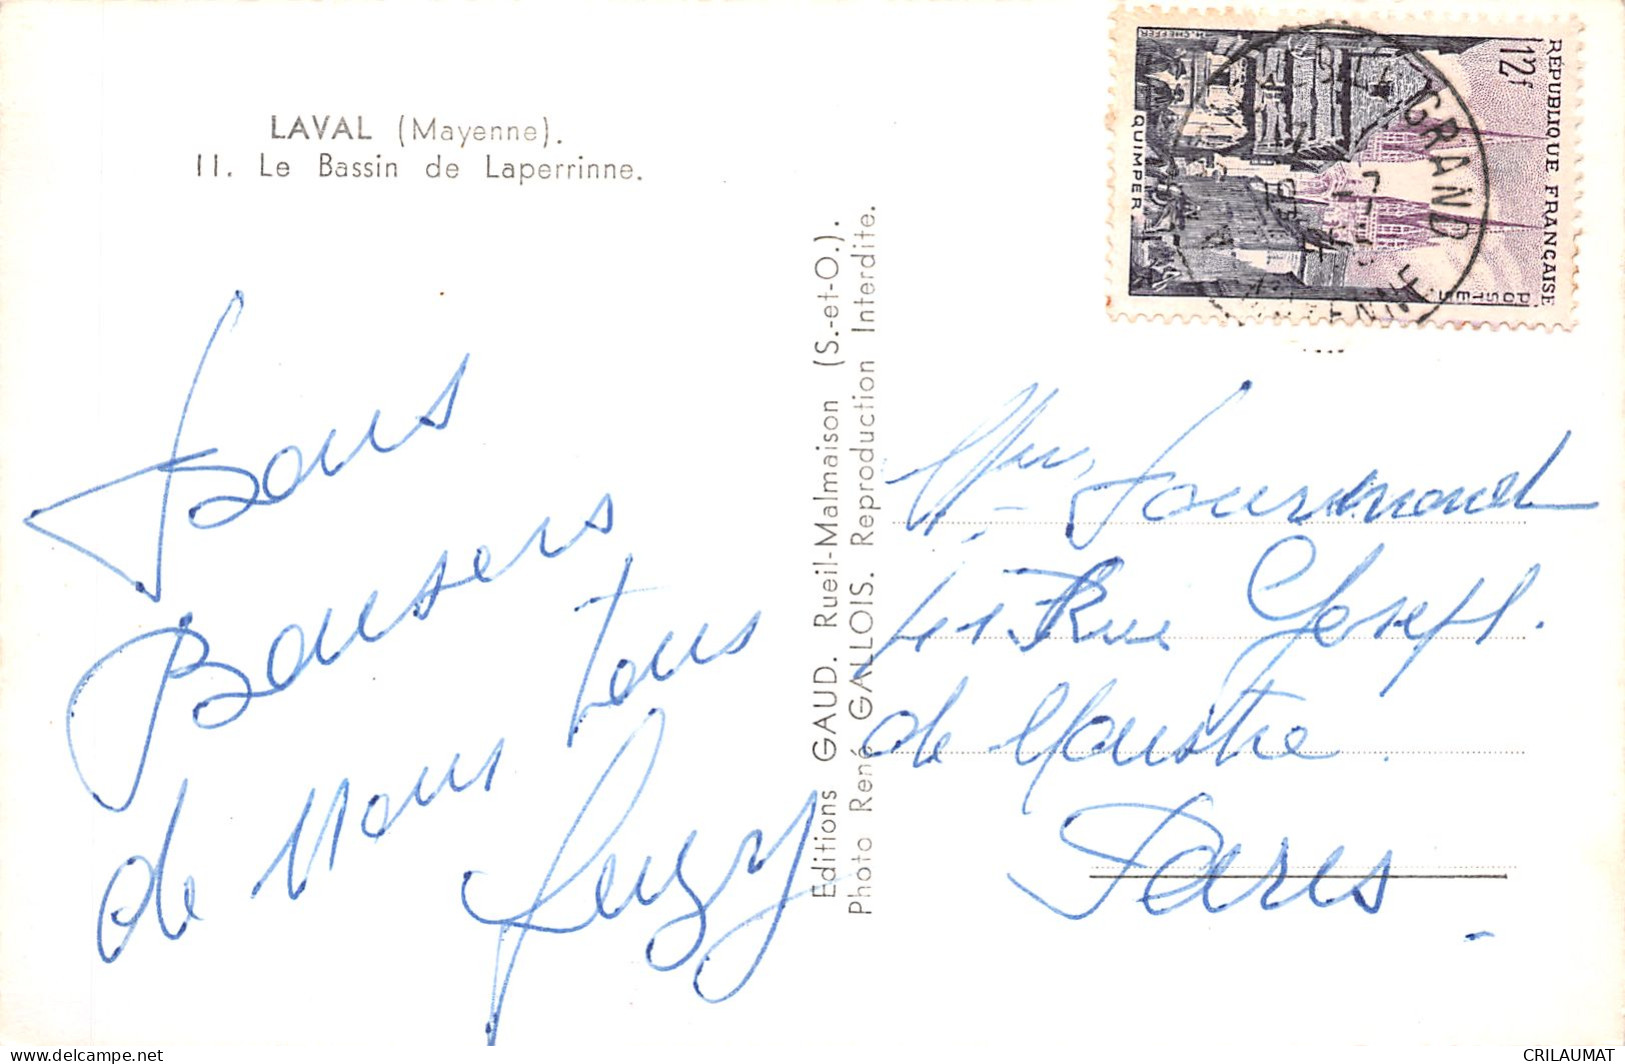 LAVAL (Mayenne).
11. Le Bassin de Laperrinne.
Bons
Baisers
de Nous tous
Suzy
Editions GAUD. Rueil-Malmaison (S.-et-O.).
Photo René GALLOIS. Reproduction Interdite.
REPUBLIQUE FRANÇAISE
12f
POSTES
QUIMPER
H. CHEFFER
GRAND
41 Rue Joseph
de Maistre
Paris
www.delcampe.net
CRILAUMAT